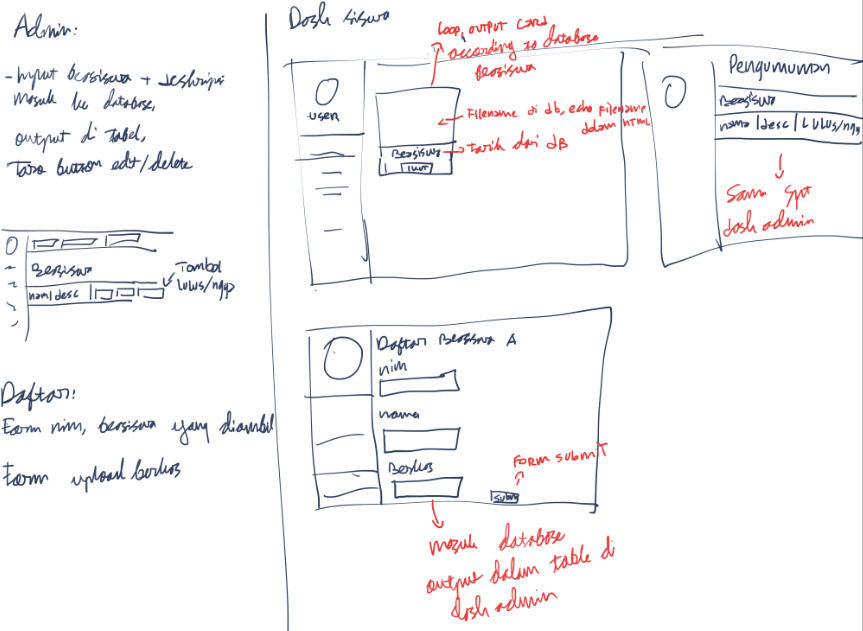 Admin:
- Input beasiswa + deskripsi
masuk ke database,
output di tabel,
Taro button edit/delete
Beasiswa
nam/desc
Tombol
Lulus/ngga
Daftar:
Form nim, beasiswa yang diambil
Form upload berkas
Dash siswa
Loop, output card
according to database
beasiswa
user
Filename di db, echo filename
dalam html
Beasiswa
Tarik dari dB
Pengumuman
Beasiswa
nama |desc | Lulus/ngga
Sama spt
dash admin
Daftar Beasiswa A
nim
nama
Berkas
Form submit
submit
masuk database
output dalam table di
dash admin